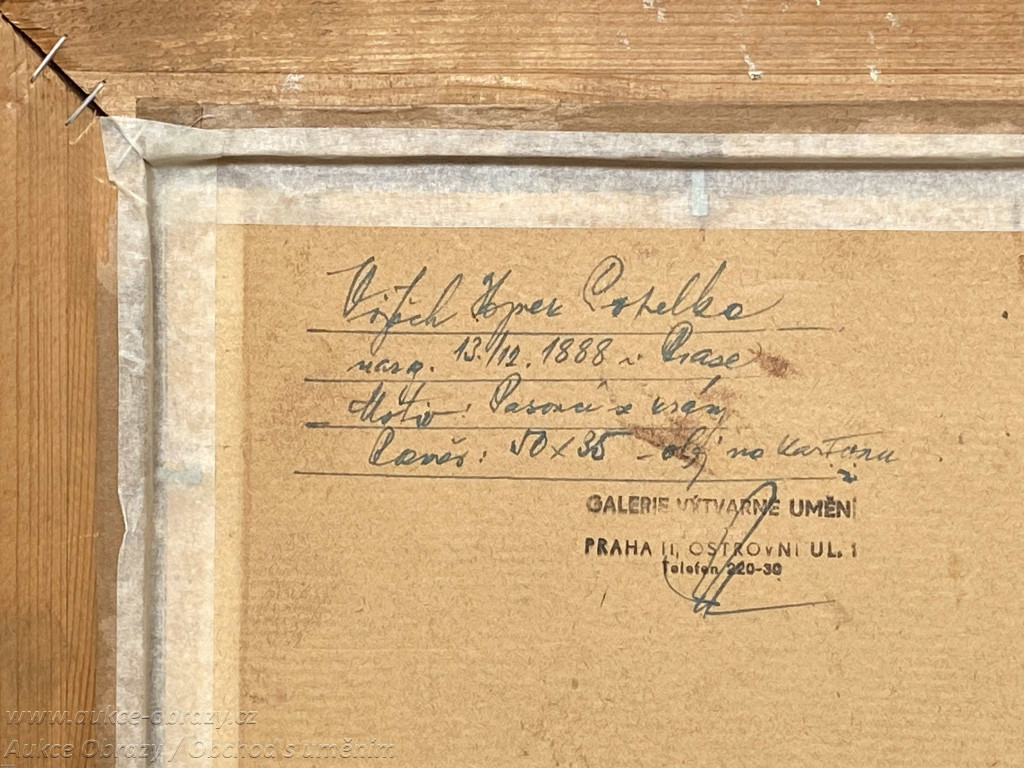 Vojtěch Hynek Popelka
naroz. 13./12. 1888 v Praze
Motiv: Pasoucí se krávy
Rozměr: 50 x 35 - olej na kartonu
GALERIE VÝTVARNÉ UMĚNÍ
PRAHA II, OSTROVNÍ UL. 1
Telefon 220-30
www.aukce-obrazy.cz
Aukce Obrazy / Obchod s uměním